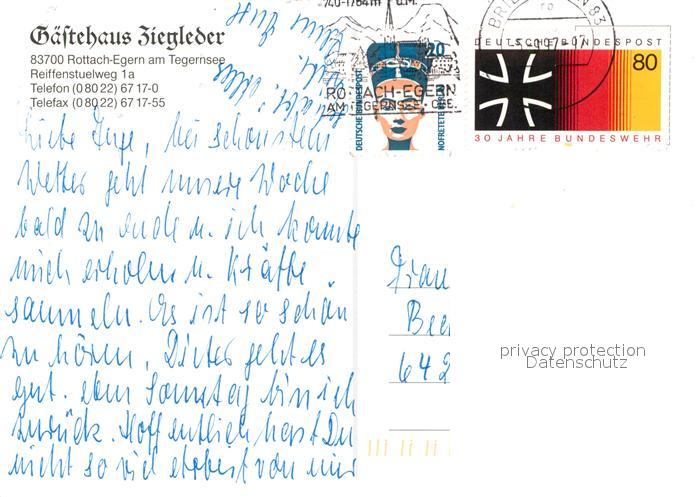 Gästehaus Ziegleder
83700 Rottach-Egern am Tegernsee
Reiffenstuelweg 1a
Telefon (0 80 22) 67 17-0
Telefax (0 80 22) 67 17-55
740-1764m ü.M.
ROTTACH-EGERN
AM TEGERNSEE, OBB.
20
DEUTSCHE BUNDESPOST
NOFRETETE BERLIN
83
DEUTSCHE BUNDESPOST
80
30 JAHRE BUNDESWEHR
Liebe Inge, bei schönstem
Wetter geht unsere Woche
bald zu ende u. ich konnte
mich erholen u. Kräfte
sammeln. Es ist so schön
zu hören, Dieter geht es
gut. am Samstag bin ich
zurück. Hoffentlich hast Du
nicht so viel von mir
Frau
642
privacy protection
Datenschutz